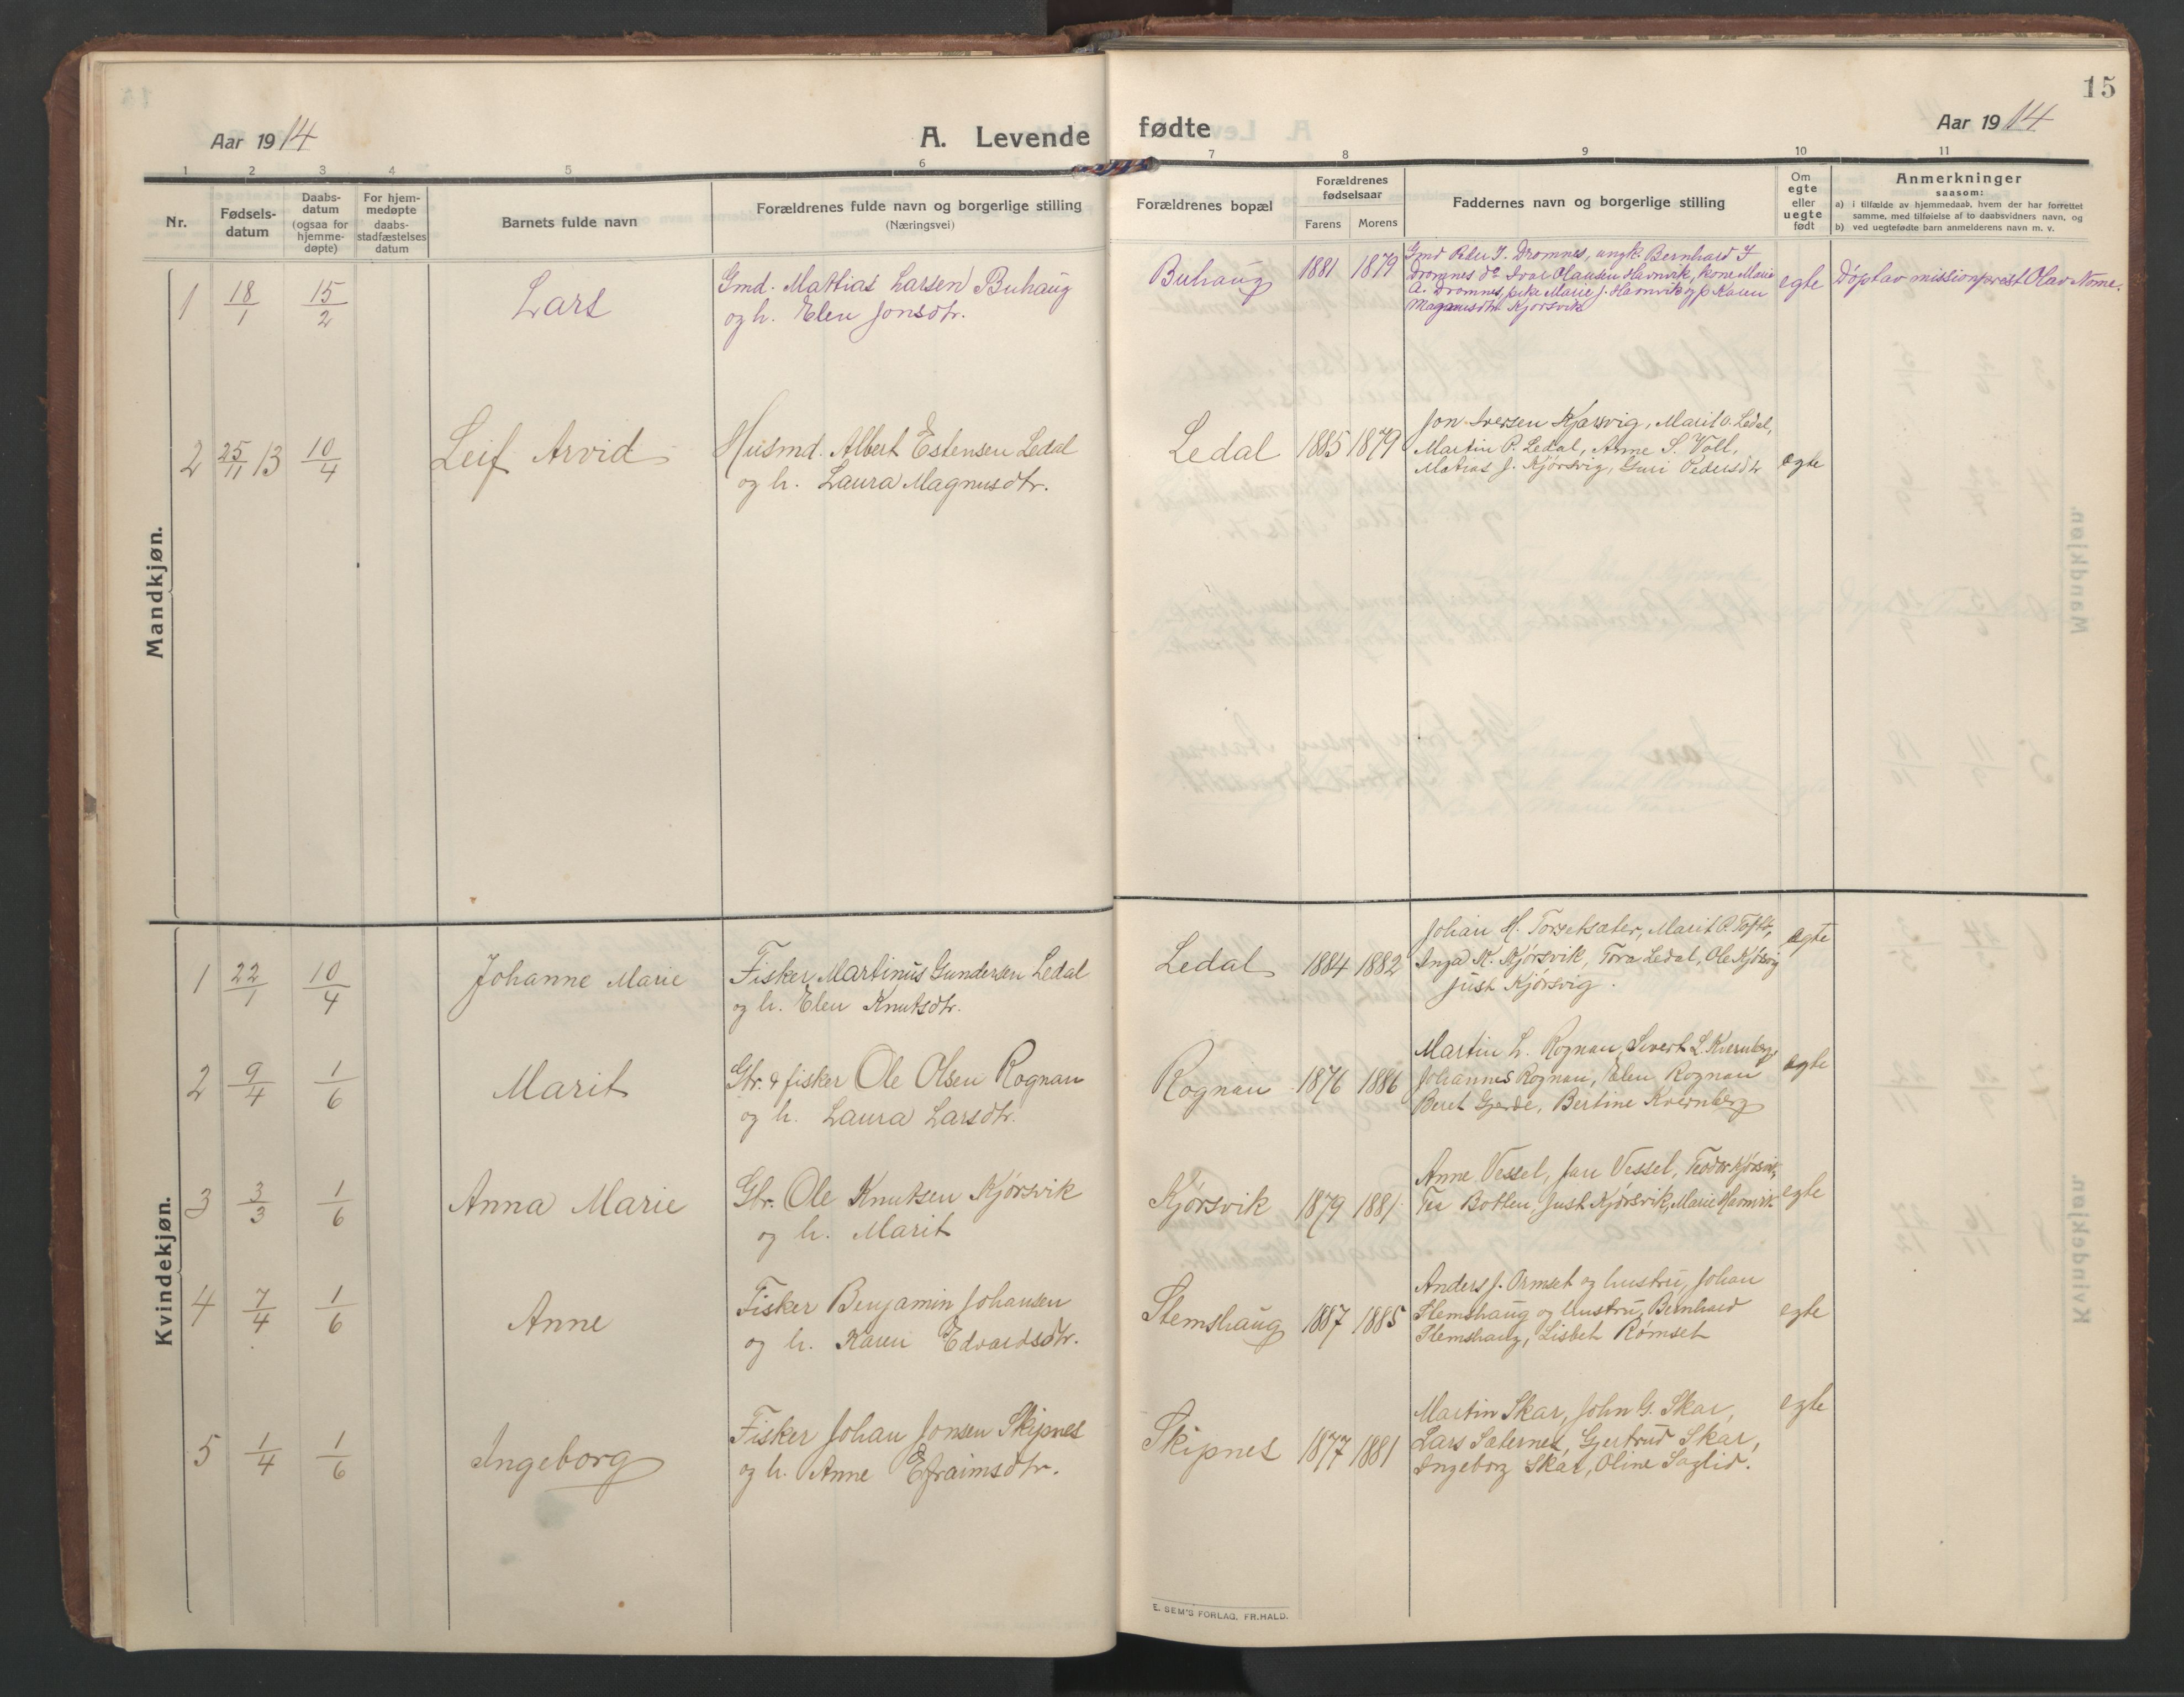 15
Aar 1914
A. Levende fødte
Aar 1914
1 2 3 4 5 6 7 8 9 10 11
Nr.
Fødsels-
datum
Daabs-
datum
(ogsaa for
hjemme-
døpte)
For hjem-
medøpte
daabs-
stadfæstelses
datum
Barnets fulde navn
Forældrenes fulde navn og borgerlige stilling
(Næringsvei)
Forældrenes bopæl
Forældrenes
fødselsaar
Farens Morens
Faddernes navn og borgerlige stilling
Om
egte
eller
uegte
født
Anmerkninger
saasom:
a) i tilfælde av hjemmedaab, hvem der har forrettet
samme, med tilføielse af to daabsvidners navn, og
b) ved uegtefødte barn anmelderens navn m. v.
Mandkjøn.
1 18/1 15/2 Lars
Gmd. Mathias Larsen Buhaug
og h. Elen Jonsdtr.
Buhaug 1881 1879
Gmd Peter J. Dromnes, ungk. Bernhard J
Dromnes do Ivar Olausen Havnvik, kone Marie
A. Dromnes, pike Marie J. Havnvik og p Karen
Magnusdtr Kjørsvik
egte
Døpt av missionprest Olav Nome.
2 25/11 13 10/4 Leif Arvid
Husmd. Albert Estensen Ledal
og h. Laura Magnusdtr.
Ledal 1885 1879
Jon Iversen Kjørsvig, Marit O. Ledal,
Martin P. Ledal, Anne S. Voll,
Matias J. Kjørsvig, Guri Pedersdtr
egte
Kvindekjøn.
1 22/1 10/4 Johanne Marie
Fisker Martinus Gundersen Ledal
og h. Elen Knutsdtr.
Ledal 1884 1882
Johan H. Torsetsæter, Marit P. Toft,
Inga K. Kjørsvik, Tora Ledal, Ole Kjørsvig
Just Kjørsvig.
egte
2 9/4 1/6 Marit
Gbr. & fisker Ole Olsen Rognan
og h. Laura Larsdtr.
Rognan 1876 1886
Martin L. Rognan, Sivert L. Kvernberg,
Johannes Rognan, Elen Rognan
Beret Gjerde, Bertine Kvernberg
egte
3 3/3 1/6 Anna Marie
Gbr. Ole Knutsen Kjørsvik
og h. Marit
Kjørsvik 1879 1881
Anne Vessel, Jan Vessel, Teodor Kjørsvik,
Botten, Just Kjørsvik, Marie Havnvik
egte
4 7/4 1/6 Anne
Fisker Benjamin Johansen
og h. Karen Edvardsdtr.
Stemshaug 1887 1885
Anders J. Ormset og hustru, Johan
Stemshaug og hustru, Bernhard
Stemshaug, Lisbet Rømset
egte
5 1/4 1/6 Ingeborg
Fisker Johan Jonsen Skipnes
og h. Anne Efraimsdtr.
Skipnes 1877 1881
Martin Skar, John G. Skar,
Lars Säternes, Gjertrud Skar,
Ingeborg Skar, Oline Saglid.
egte
E. SEM'S FORLAG, FR.HALD.